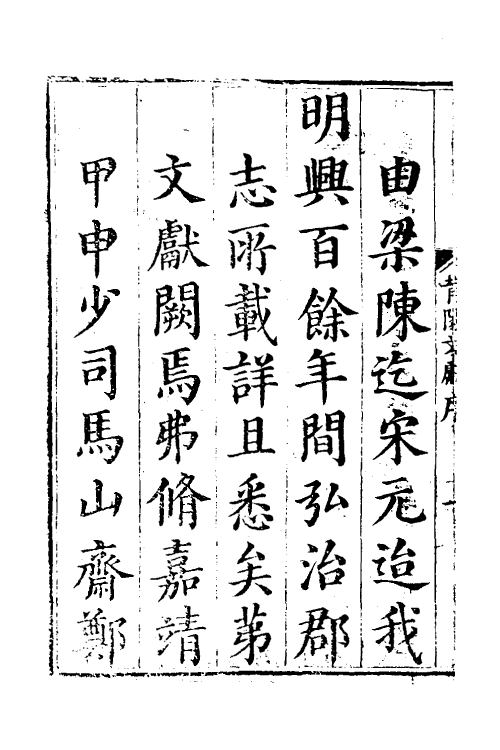 由梁陳迄宋元迨我
明興百餘年間弘治郡
志所載詳且悉矣苐
文獻闕焉弗脩嘉靖
甲申少司馬山齋鄭